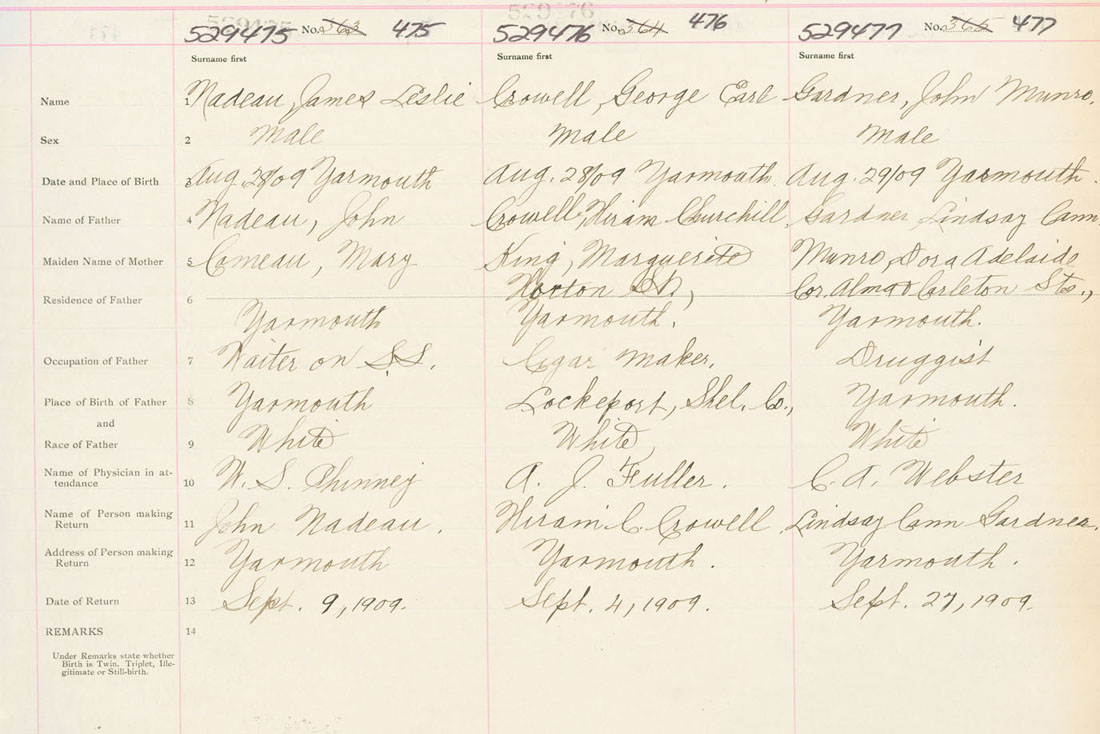 529475 No. 363 475 529476 No. 364 476 529477 No. 365 477
Surname first Surname first Surname first
Name 1 Nadeau, James Leslie Crowell, George Earl Gardner, John Munro.
Sex 2 Male Male Male
Date and Place of Birth 3 Aug. 28/09 Yarmouth Aug. 28/09 Yarmouth. Aug. 29/09 Yarmouth.
Name of Father 4 Nadeau, John Crowell, Hiram Churchill, Gardner, Lindsay Cann
Maiden Name of Mother 5 Comeau, Mary King, Marguerite Munro, Dora Adelaide
Horton St., Cor. Alma & Carleton Sts.,
Residence of Father 6
Yarmouth Yarmouth. Yarmouth.
Occupation of Father 7 Waiter on S.S. Cigar Maker. Druggist
Place of Birth of Father 8 Yarmouth Lockeport, Shel. Co., Yarmouth.
and
Race of Father 9 White White White
Name of Physician in at-
tendance 10 W. S. Phinney A. J. Fuller. C. A. Webster
Name of Person making
Return 11 John Nadeau. Hiram C. Crowell Lindsay Cann Gardner.
Address of Person making
Return 12 Yarmouth Yarmouth. Yarmouth.
Date of Return 13 Sept. 9, 1909. Sept. 4, 1909. Sept. 27, 1909.
REMARKS 14
Under Remarks state whether
Birth is Twin, Triplet, Ille-
gitimate or Still-birth.